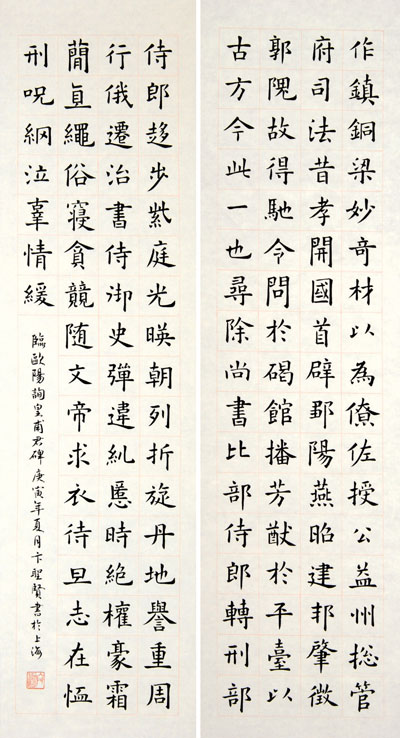 作鎮銅梁妙奇材以為僚佐授公益州総管
府司法昔孝開國首辟鄒陽燕昭建邦肇徵
郭隗故得馳令問於碣館播芳猷於平臺以
古方今此一也尋除尚書比部侍郎轉刑部
侍郎趍步紫庭光暎朝列折旋丹地譽重周
行俄遷治書侍御史彈違糺慝時絕權豪霜
簡直繩俗寢貪競随文帝求衣待旦志在恤
刑呪網泣辜情緩
臨歐陽詢皇甫君碑庚寅年夏月卞聖賢書於上海